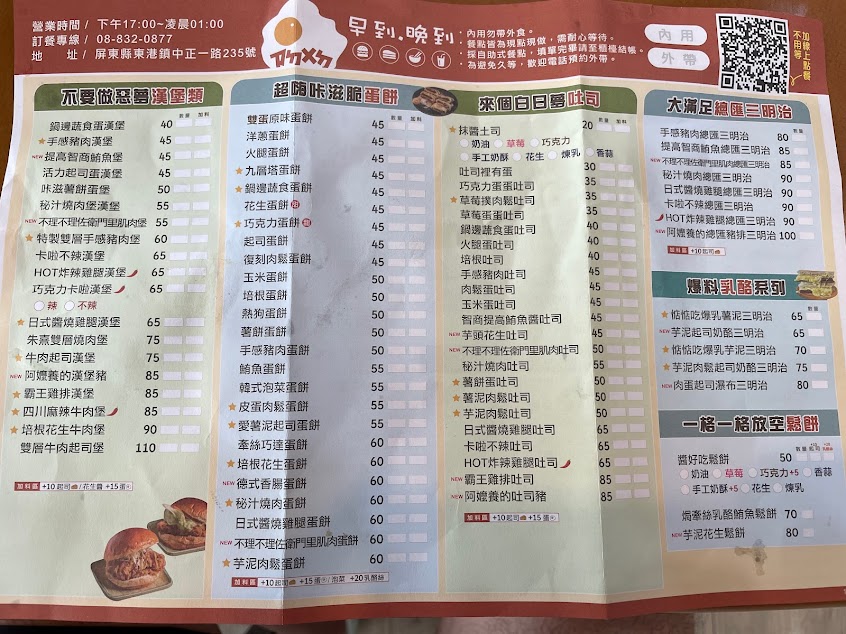 營業時間 / 下午17:00~凌晨01:00
訂餐專線 / 08-832-0877
地 址 / 屏東縣東港鎮中正一路235號
早到.晚到
內用勿帶外食。
餐點皆為現點現做，需耐心等待。
採自助式餐點，填單完畢請至櫃檯結帳。
為避免久等，歡迎電話預約外帶。
內用
外帶
加線上點餐
不用等
不要做惡夢漢堡類
數量 加料
鍋邊蔬食蛋漢堡 40
手感豬肉漢堡 45
NEW 提高智商鮪魚堡 45
活力起司蛋漢堡 45
咔滋薯餅蛋堡 50
秘汁燒肉蛋漢堡 55
NEW 不理不理佐衛門里肌肉堡 55
特製雙層手感豬肉 60
卡啦不辣漢堡 65
HOT炸辣雞腿漢堡 65
巧克力卡啦漢堡 65
辣 不辣
日式醬燒雞腿漢堡 65
朱熹雙層燒肉堡 75
牛肉起司漢堡 75
NEW 阿嬤養的漢堡豬 85
霸王雞排漢堡 85
四川麻辣牛肉堡 85
培根花生牛肉堡 90
雙層牛肉起司堡 110
加料區 +10 起司/花生醬 +15 蛋
超嗨咔滋脆蛋餅
數量 加料
雙蛋原味蛋餅 45
洋蔥蛋餅 45
火腿蛋餅 45
九層塔蛋餅 45
鍋邊蔬食蛋餅 45
花生蛋餅 甜 45
巧克力蛋餅 甜 45
起司蛋餅 45
復刻肉鬆蛋餅 45
玉米蛋餅 50
培根蛋餅 50
熱狗蛋餅 50
薯餅蛋餅 50
手感豬肉蛋餅 50
鮪魚蛋餅 50
韓式泡菜蛋餅 55
皮蛋肉鬆蛋餅 55
愛薯泥起司蛋餅 55
牽絲巧達蛋餅 60
培根花生蛋餅 60
NEW 德式香腸蛋餅 60
秘汁燒肉蛋餅 60
日式醬燒雞腿蛋餅 60
NEW 不理不理佐衛門里肌肉蛋餅 60
芋泥肉鬆蛋餅 60
加料區 +10 起司 +15 蛋/泡菜 +20 乳酪絲
來個白日夢吐司
數量 加料
抹醬土司 20
奶油 草莓 巧克力
手工奶酥 花生 煉乳 香蒜
吐司裡有蛋 30
巧克力蛋蛋吐司 35
草莓撲肉鬆吐司 35
草莓蛋蛋吐司 35
鍋邊蔬食蛋吐司 40
火腿蛋吐司 40
培根吐司 40
手感豬肉吐司 45
肉鬆蛋吐司 45
玉米蛋吐司 45
智商提高鮪魚醬吐司 45
NEW 芋頭花生吐司 45
NEW 不理不理佐衛門里肌肉吐司 50
秘汁燒肉吐司 50
薯餅蛋吐司 50
薯泥肉鬆吐司 50
芋泥肉鬆吐司 50
日式醬燒雞腿吐司 65
卡啦不辣吐司 65
HOT炸辣雞腿吐司 65
NEW 霸王雞排吐司 85
NEW 阿嬤養的吐司豬 85
加料區 +10 起司 +15 蛋
大滿足總匯三明治
數量 加料
手感豬肉總匯三明治 80
提高智商鮪魚總匯三明治 85
NEW 不理不理佐衛門里肌肉總匯三明治 85
秘汁燒肉總匯三明治 90
日式醬燒雞腿總匯三明治 90
卡啦不辣總匯三明治 90
HOT炸辣雞腿總匯三明治 90
NEW 阿嬤養的總匯豬排三明治 100
加料區 +10 起司
爆料乳酪系列
惦惦吃爆乳薯泥三明治 65
NEW 芋泥起司奶酪三明治 65
惦惦吃爆乳芋泥三明治 70
芋泥肉鬆起司奶酪三明治 75
NEW 肉蛋起司瀑布三明治 80
一格一格放空鬆餅
醬好吃鬆餅 50
奶油 草莓 巧克力+5 香蒜
手工奶酥+5 花生 煉乳
焗牽絲乳酪鮪魚鬆餅 70
NEW 芋泥花生鬆餅 80